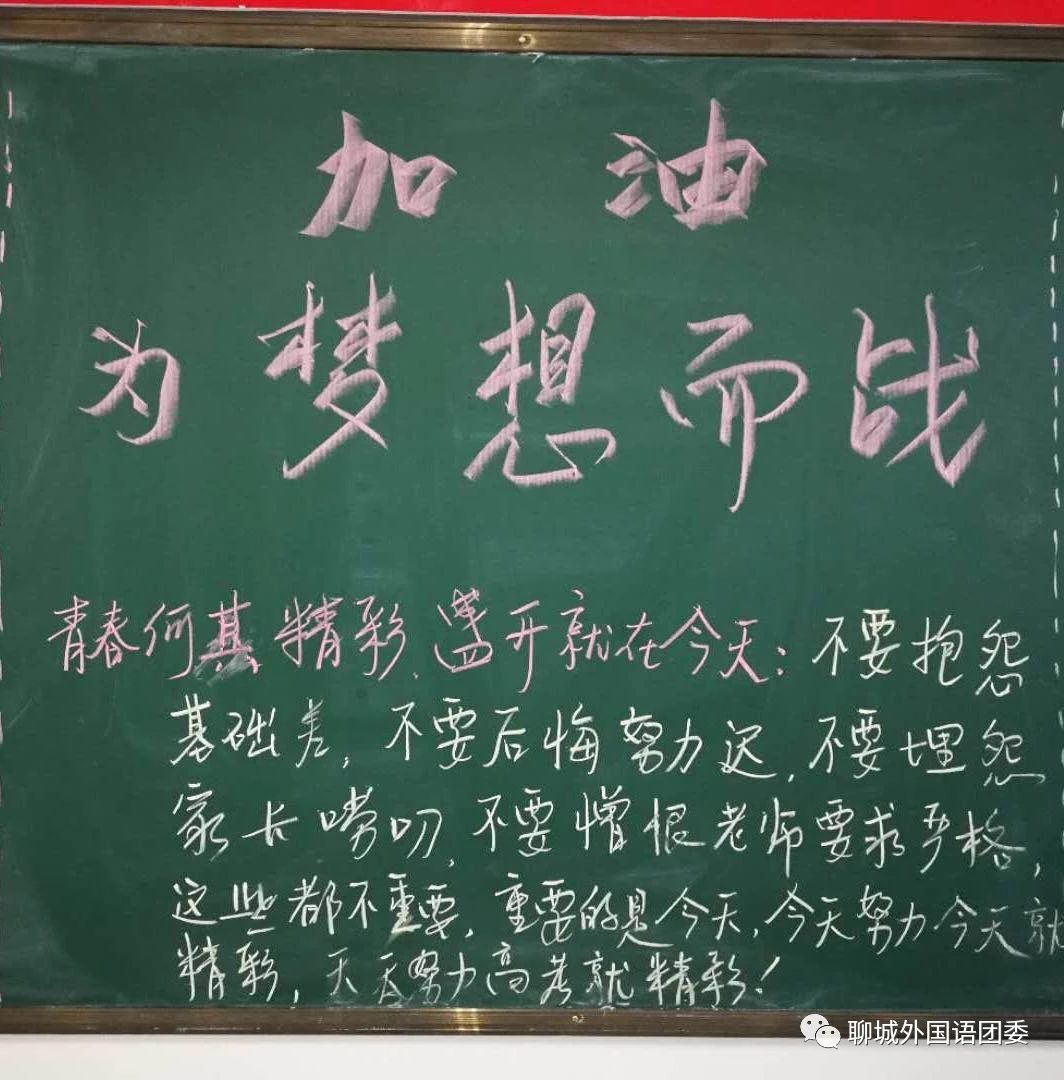 加油
为梦想而战
青春何其精彩,盛开就在今天:不要抱怨
基础差,不要后悔努力迟,不要埋怨
家长唠叨,不要憎恨老师要求严格,
这些都不重要,重要的是今天,今天努力今天就
精彩,天天努力高考就精彩!
聊城外国语团委